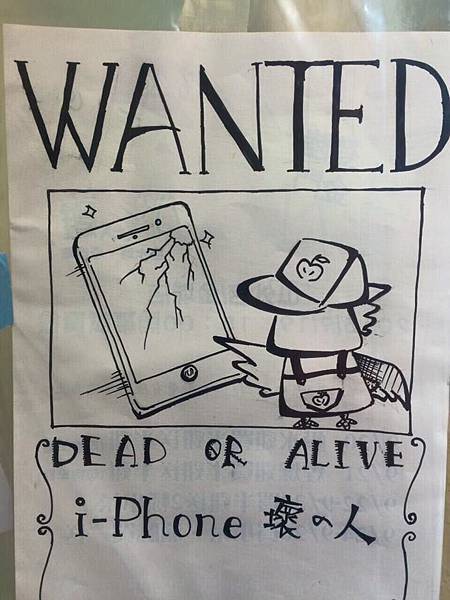 WANTED
DEAD OR ALIVE
i-Phone 壞の人